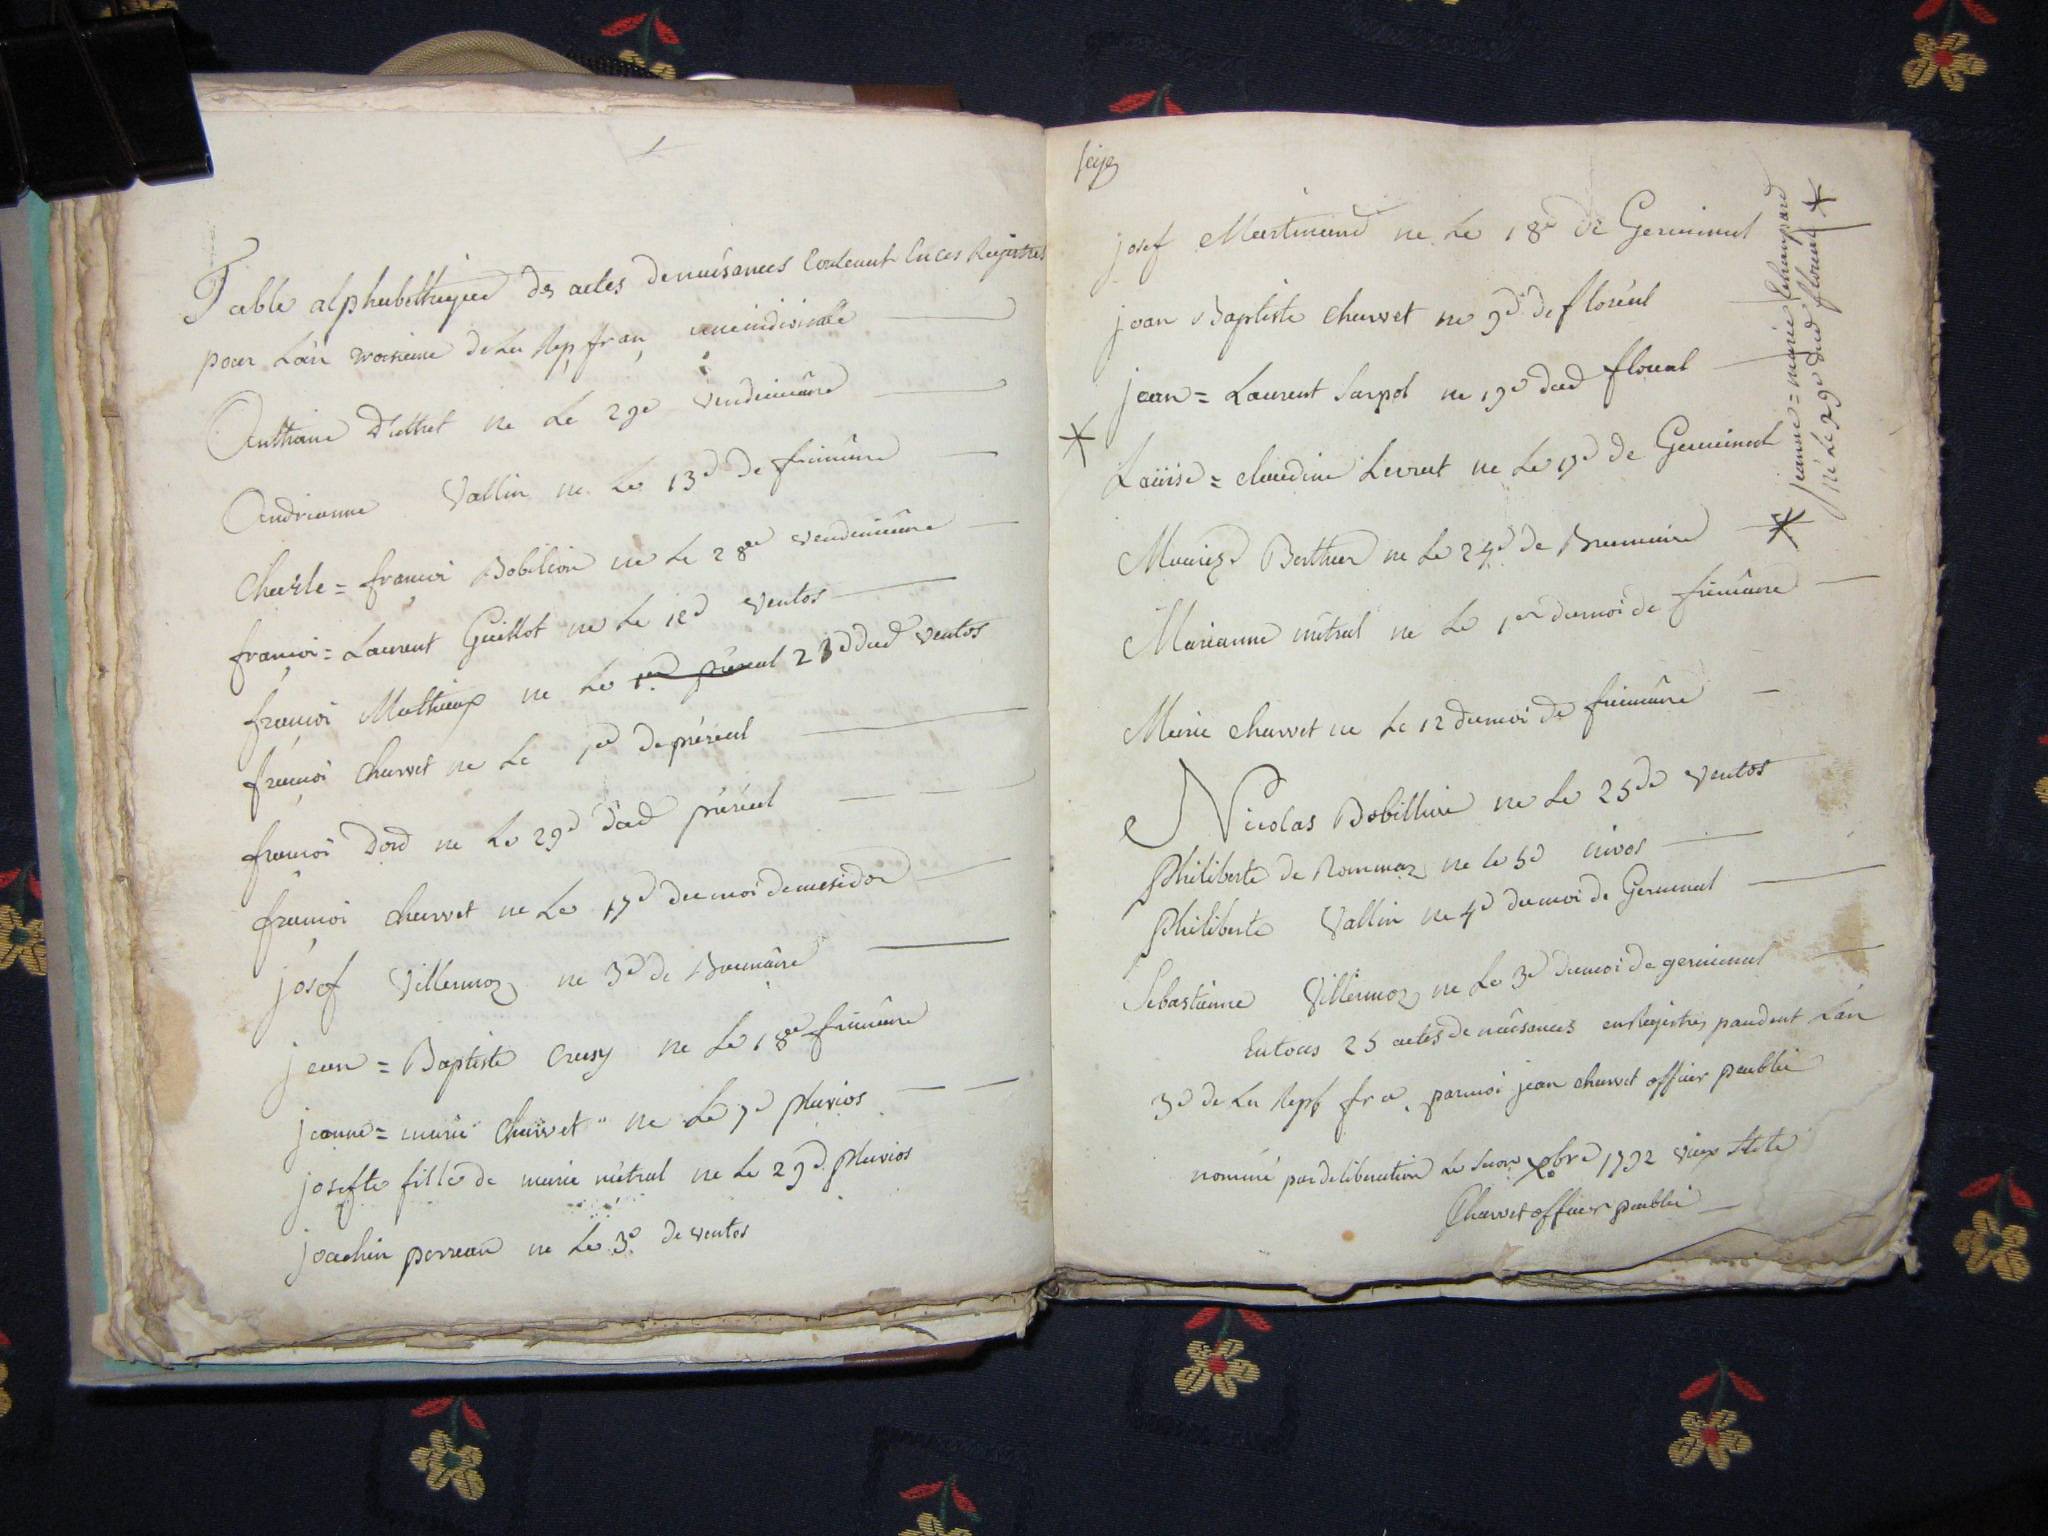 Table alphabethique des actes de naisances Contenut En ces Registres
pour L'an troisieme de La Rep fran uneindivisible
Anthoine D'uttret ne Le 29e Vendemiâre
Andrianne Vallin ne Le 13d de frimâire
Charle = françoi Bobilion ne Le 28me Vendemiaire
françoi = Laurent Guillot ne Le 12d Ventos
françoi Mathieux ne Le 1er préreal 23d dud ventos
françoi Charvet ne Le 1er de préréal
françoi Dord ne Le 29d dud préréal
françoi Charvet ne Le 17d du moi de mesidor
josef Villermoz ne 3d de Brumâire
jean = Baptiste Crusy ne Le 18me frimâire
jeanne = marie Charvet ne Le 7d pluvios
josefte fille de marie métral ne Le 29d pluvios
joachin perreau ne Le 3d de ventos
seize
josef Martinand ne Le 18d de Germinal
jean Baptiste Charvet ne 9d de floréal
jean = Laurent Sarpol ne 19d dud floreal
Loüise = Claudine Levrat ne Le 17d de Germinal
Mauriz Berthier ne Le 24d de Brumaire
Marianne métral ne Le 1er du moi de frimâire
Marie Charvet ne Le 12 du moi de frimâire
Nicolas Bobillion ne Le 25de Ventos
Philiberte de Rommaz ne le 5d nivos
Philiberte Vallin ne 4d du moi de Germinal
Sebastienne Villermoz ne Le 3d du moi de germinal
En tous 25 actes de naîsances enRegistres pandent L'an
3d de La Repb fra. par moi jean Charvet officier peublic
nommé par deliberation Le xbre 1792 vieux Stile
Charvet officier peublic
jeanne = marie
né Le 29d dud floreal